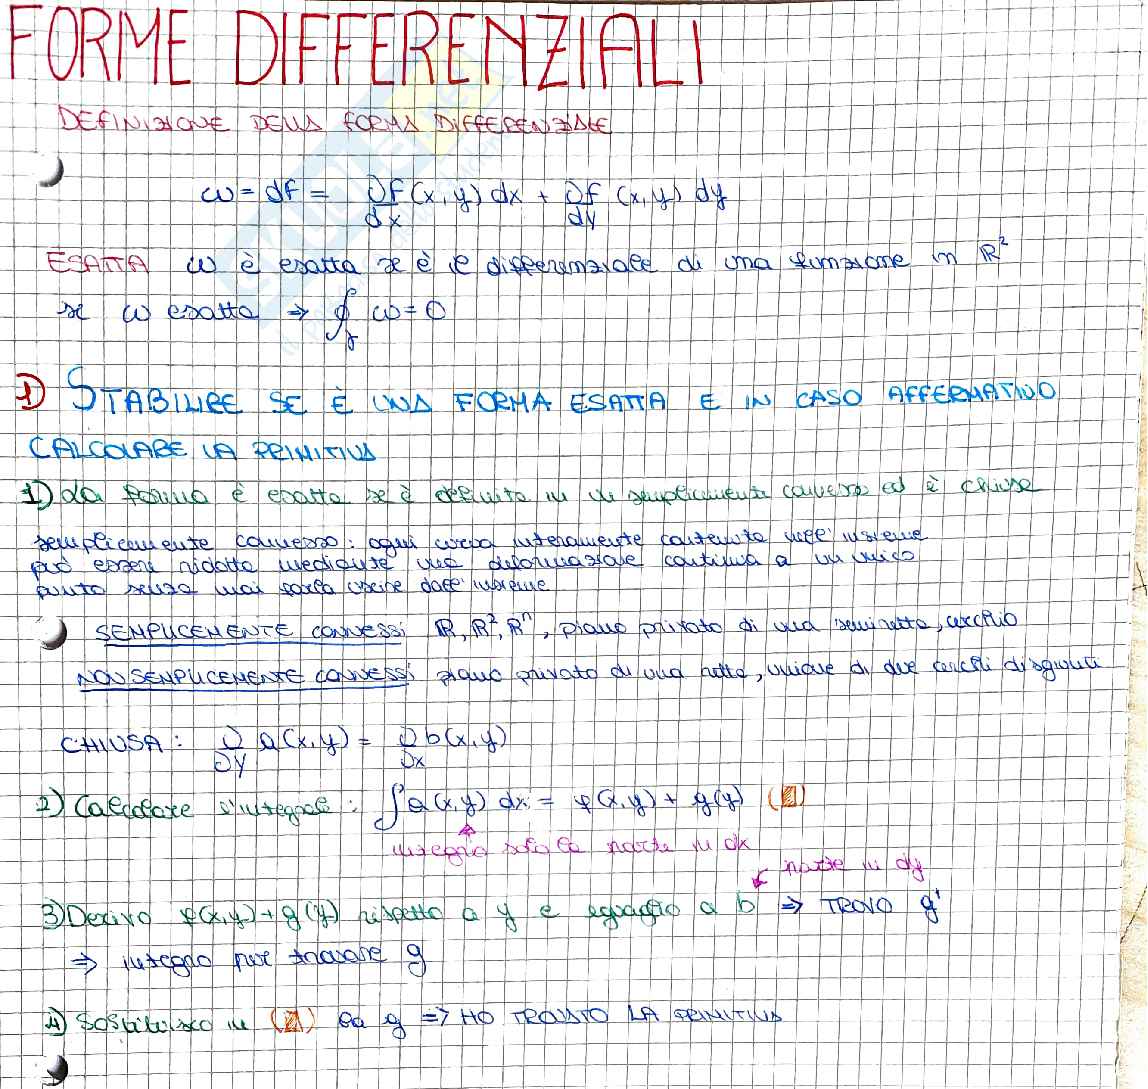 FORME DIFFERENZIALI
DEFINIZIONE DELLA FORMA DIFFERENZIALE
ω = df = ∂f/dx (x,y) dx + ∂f/dy (x,y) dy
ESATTA ω è esatta se è il differenziale di una funzione in ℝ²
se ω esatta ⇒ ∮γ ω = 0
1) STABILIRE SE È UNA FORMA ESATTA E IN CASO AFFERMATIVO
CALCOLARE LA PRIMITIVA
1) La forma è esatta se è definita in un semplicemente connesso ed è chiusa
semplicemente connesso: ogni curva interamente contenuta nell'insieme
può essere ridotta mediante una deformazione continua a un unico
punto senza mai farla uscire dall'insieme
SEMPLICEMENTE CONNESSI: ℝ, ℝ², ℝⁿ, piano privato di una semiretta, cerchio
NON SEMPLICEMENTE CONNESSI: piano privato di una retta, unione di due cerchi disgiunti
CHIUSA: ∂/∂y a(x,y) = ∂/∂x b(x,y)
2) Calcolare l'integrale: ∫a(x,y) dx = φ(x,y) + g(y)
integro solo la parte in dx
parte in dy
3) Derivo φ(x,y) + g(y) rispetto a y e eguaglio a b ⇒ TROVO g'
⇒ integro per trovare g
4) Sostituisco in la g ⇒ HO TROVATO LA PRIMITIVA